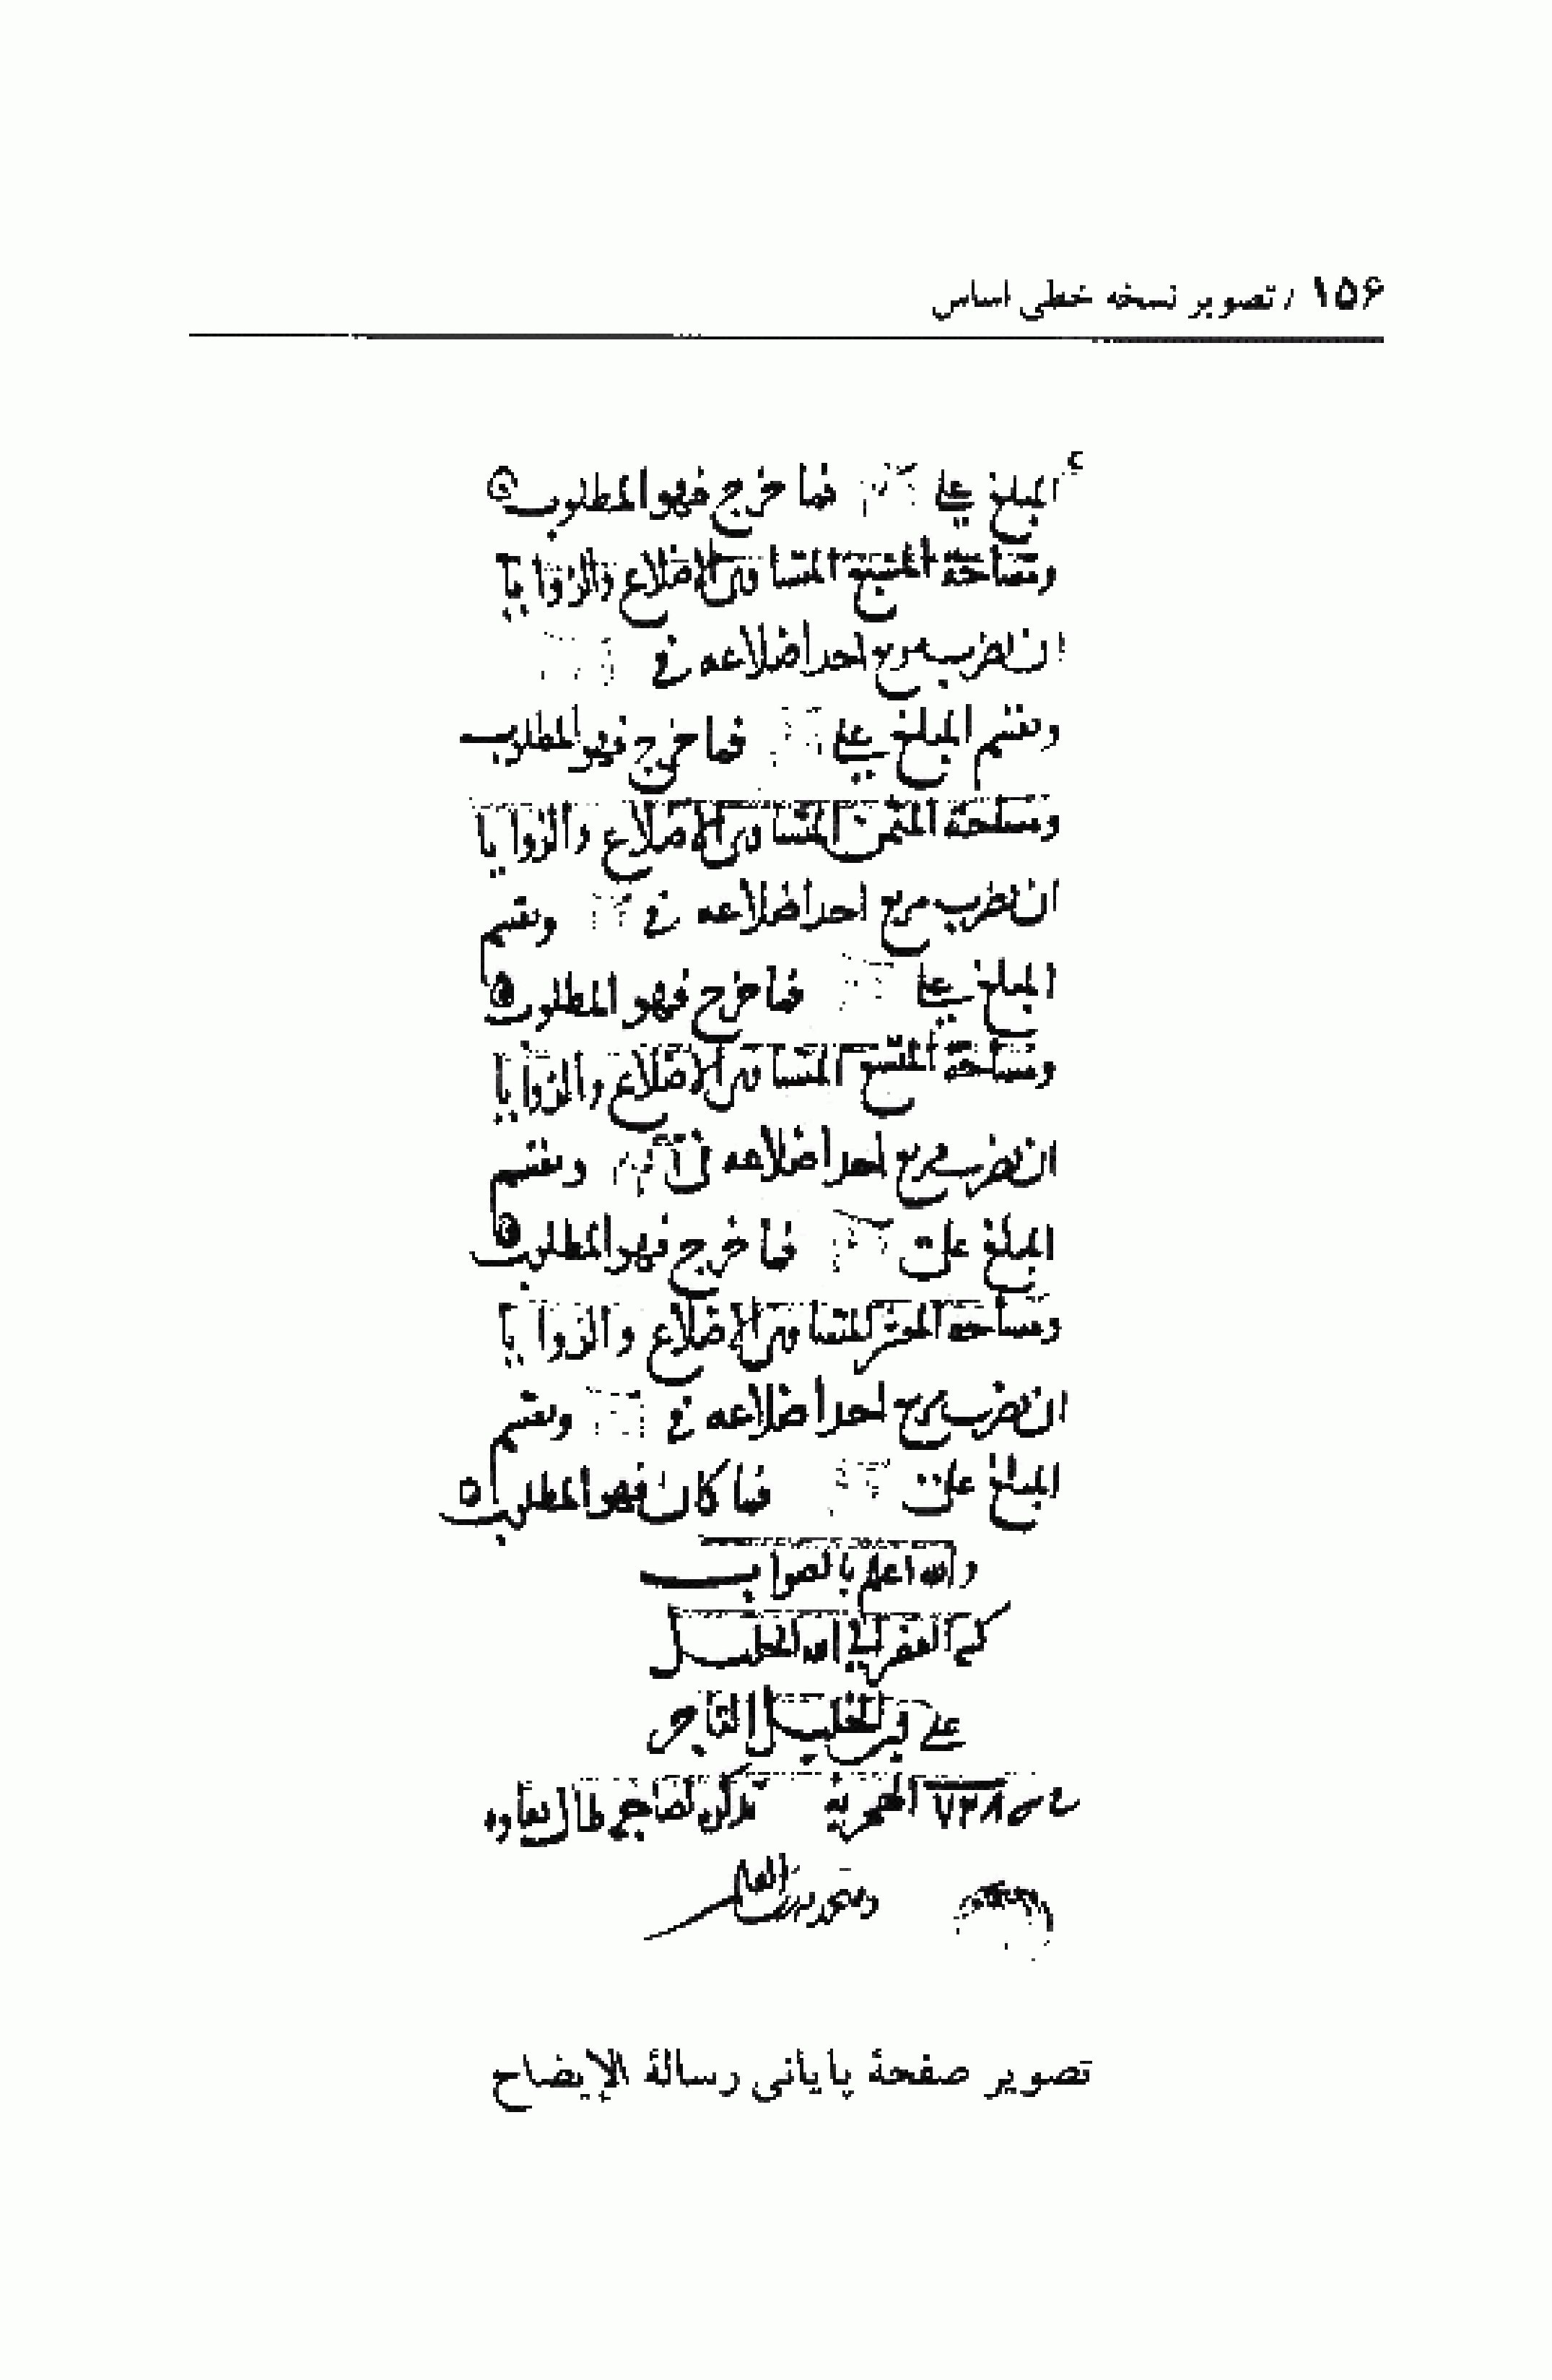 ۱۵۶ / تصویر نسخه خطی اساس
المبلغ علی فما خرج فهو المطلوب
ومساحة المسبع المتساوی الاضلاع والزوایا
ان تضرب مربع احد اضلاعه فی
وتقسم المبلغ علی فما خرج فهو المطلوب
ومساحة المثمن المتساوی الاضلاع والزوایا
ان تضرب مربع احد اضلاعه فی وتقسم
المبلغ علی فما خرج فهو المطلوب
ومساحة المتسع المتساوی الاضلاع والزوایا
ان تضرب مربع احد اضلاعه فی وتقسم
المبلغ علی فما خرج فهو المطلوب
ومساحة المعشر المتساوی الاضلاع والزوایا
ان تضرب مربع احد اضلاعه فی وتقسم
المبلغ علی فما کان فهو المطلوب
والله اعلم بالصواب
الفقیر الی الله الخلیل
علی التاجر
۷۲۸ الهجریة لصاحبه طال بقاوه
تصویر صفحهٔ پایانی رسالهٔ الإیضاح